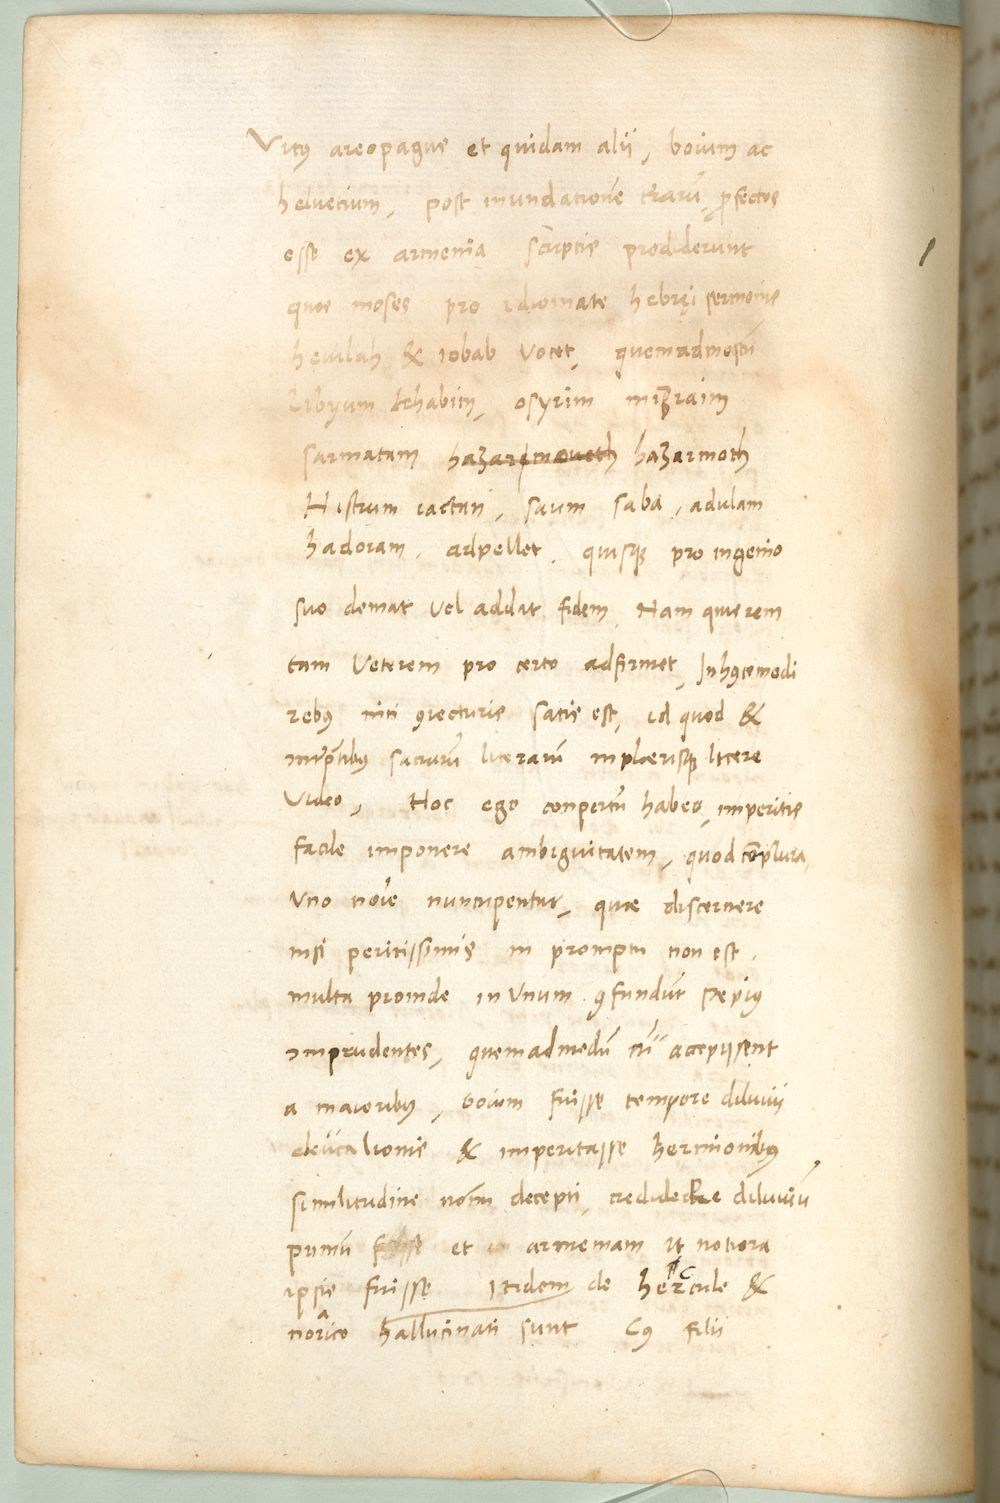 Vitꝰ areopagus et quidam alij, boium ac
helvetium, post inundationē trarū, ꝓfectos
esse ex armenia scriptis prodiderunt
quos moses pro idiomate hebręi sermonis
hevilah & iobab vocet, quemadmodū
libyum lehabim, osyrim mizraim
sarmatam hazarmoth
Histrum iactan, saum saba, adulam
hadoram, adpellet, quisq; pro ingenio
suo demat vel addat fidem, Nam quis rem
tam veterem pro certo adfirmet, In hꝰcemodi
rebꝰ niti ꝯiecturis satis est, id quod &
sacrarū literarū in plærisq; licere
video, Hoc ego conpertū habeo, imperitis
facile imponere ambiguitatem, quod cōplura
uno noīe nuncupentur, quæ discernere
nisi peritissimis in promptu non est,
multa proinde in unum ꝯfundūt sepiꝰ
imprudentes, quemadmodū cū accepissent
a maioribꝰ, boium fuisse tempore diluvij
deucalionis & imperitasse hermionibꝰ
similitudine decepti, credidere diluviū
primū et armeniam ut notiora
ipsis fuisse Itidem de hercule &
norico hallucinati sunt Cꝰ filii